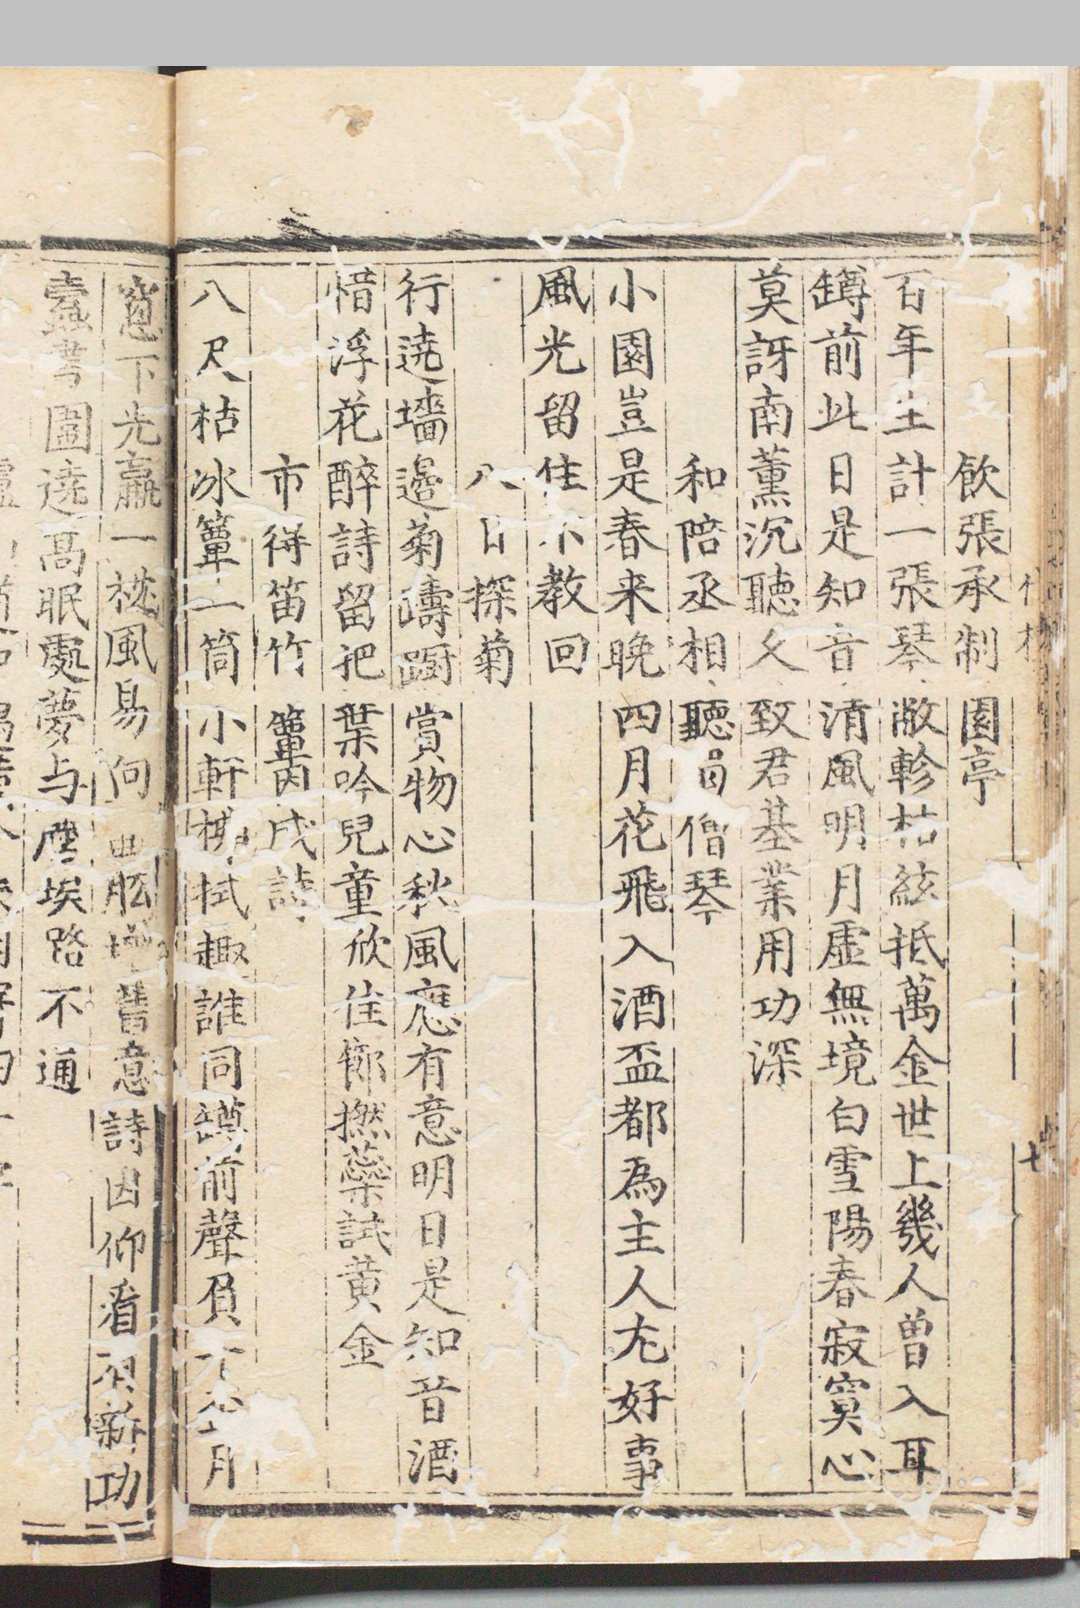 飲張承制園亭
百年生計一張琴敝軫枯絃抵萬金世上幾人曾入耳
鐏前此日是知音清風明月虛無境白雪陽春寂寞心
莫訝南薰沉聽久致君基業用功深
和陪丞相聽僧琴
小園豈是春来晚四月花飛入酒盃都為主人尤好事
風光留住不教回
八日探菊
行遶墻邊菊躊躕賞物心秋風應有意明日是知音酒
惜浮花醉詩留把葉吟兒童欣佳節撚蘂試黃金
市得笛竹簟因成詩
八尺枯冰簟一筒小軒拂拭趣誰同鐏前聲負
窓下光贏一枕風易向增舊意詩因仰看新功
蠧書圍遶髙眠處夢与塵埃路不通